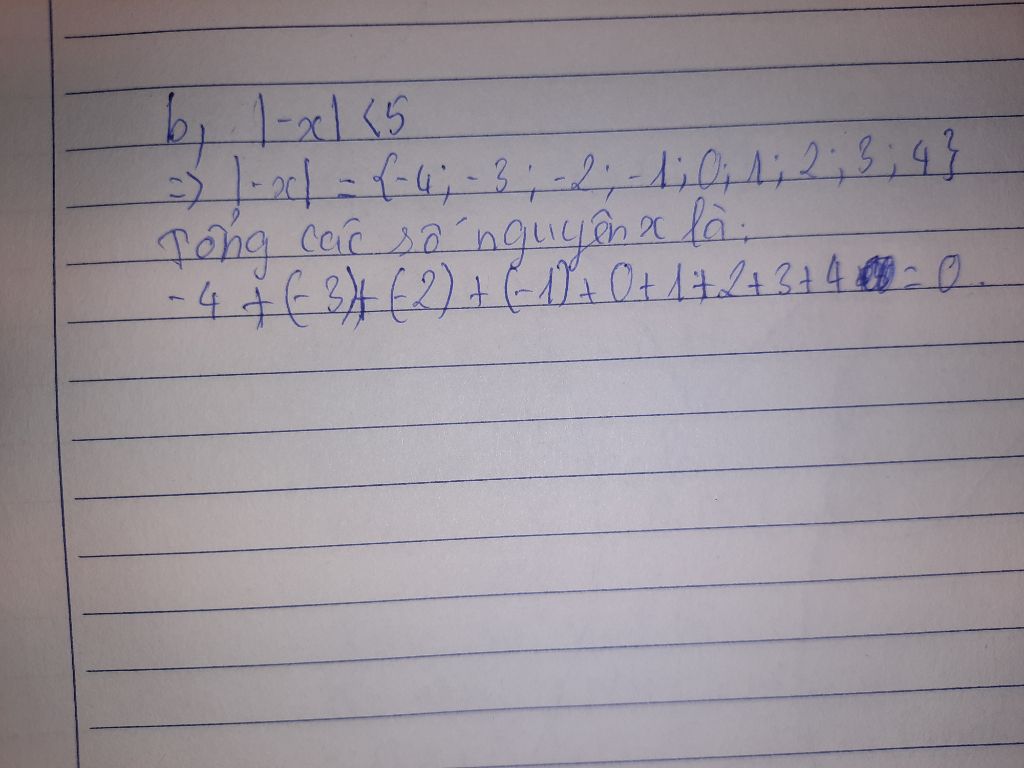 b, |-x| < 5
=> |-x| = {-4; -3; -2; -1; 0; 1; 2; 3; 4}
Tổng các số nguyên x là:
-4 + (-3) + (-2) + (-1) + 0 + 1 + 2 + 3 + 4 = 0.